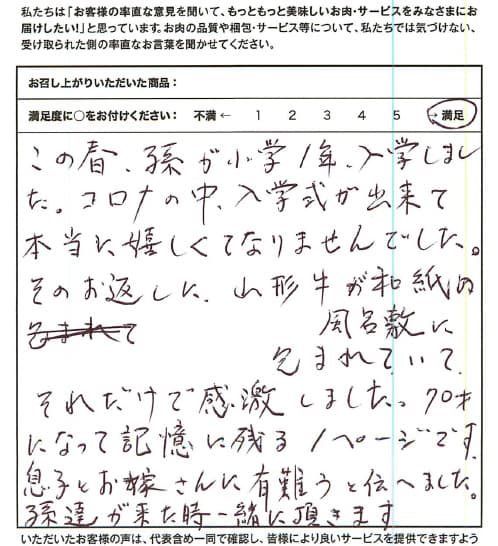 私たちは「お客様の率直な意見を聞いて、もっともっと美味しいお肉・サービスをみなさまにお
届けしたい!」と思っています。お肉の品質や梱包・サービス等について、私たちでは気づけない、
受け取られた側の率直なお言葉を聞かせてください。
お召し上がりいただいた商品：
満足度に○をお付けください： 不満 ← 1 2 3 4 5 → 満足
この春、孫が小学1年、入学しまし
た。コロナの中、入学式が出来て
本当に嬉しくてなりませんでした。
そのお返しに、山形牛が和紙の
風呂敷に
包まれていて、
それだけで感激しました。70才
になって記憶に残る1ページです。
息子とお嫁さんに有難うと伝へました。
孫達が来た時一緒に頂きます
いただいたお客様の声は、代表含め一同で確認し、皆様により良いサービスを提供できますよう